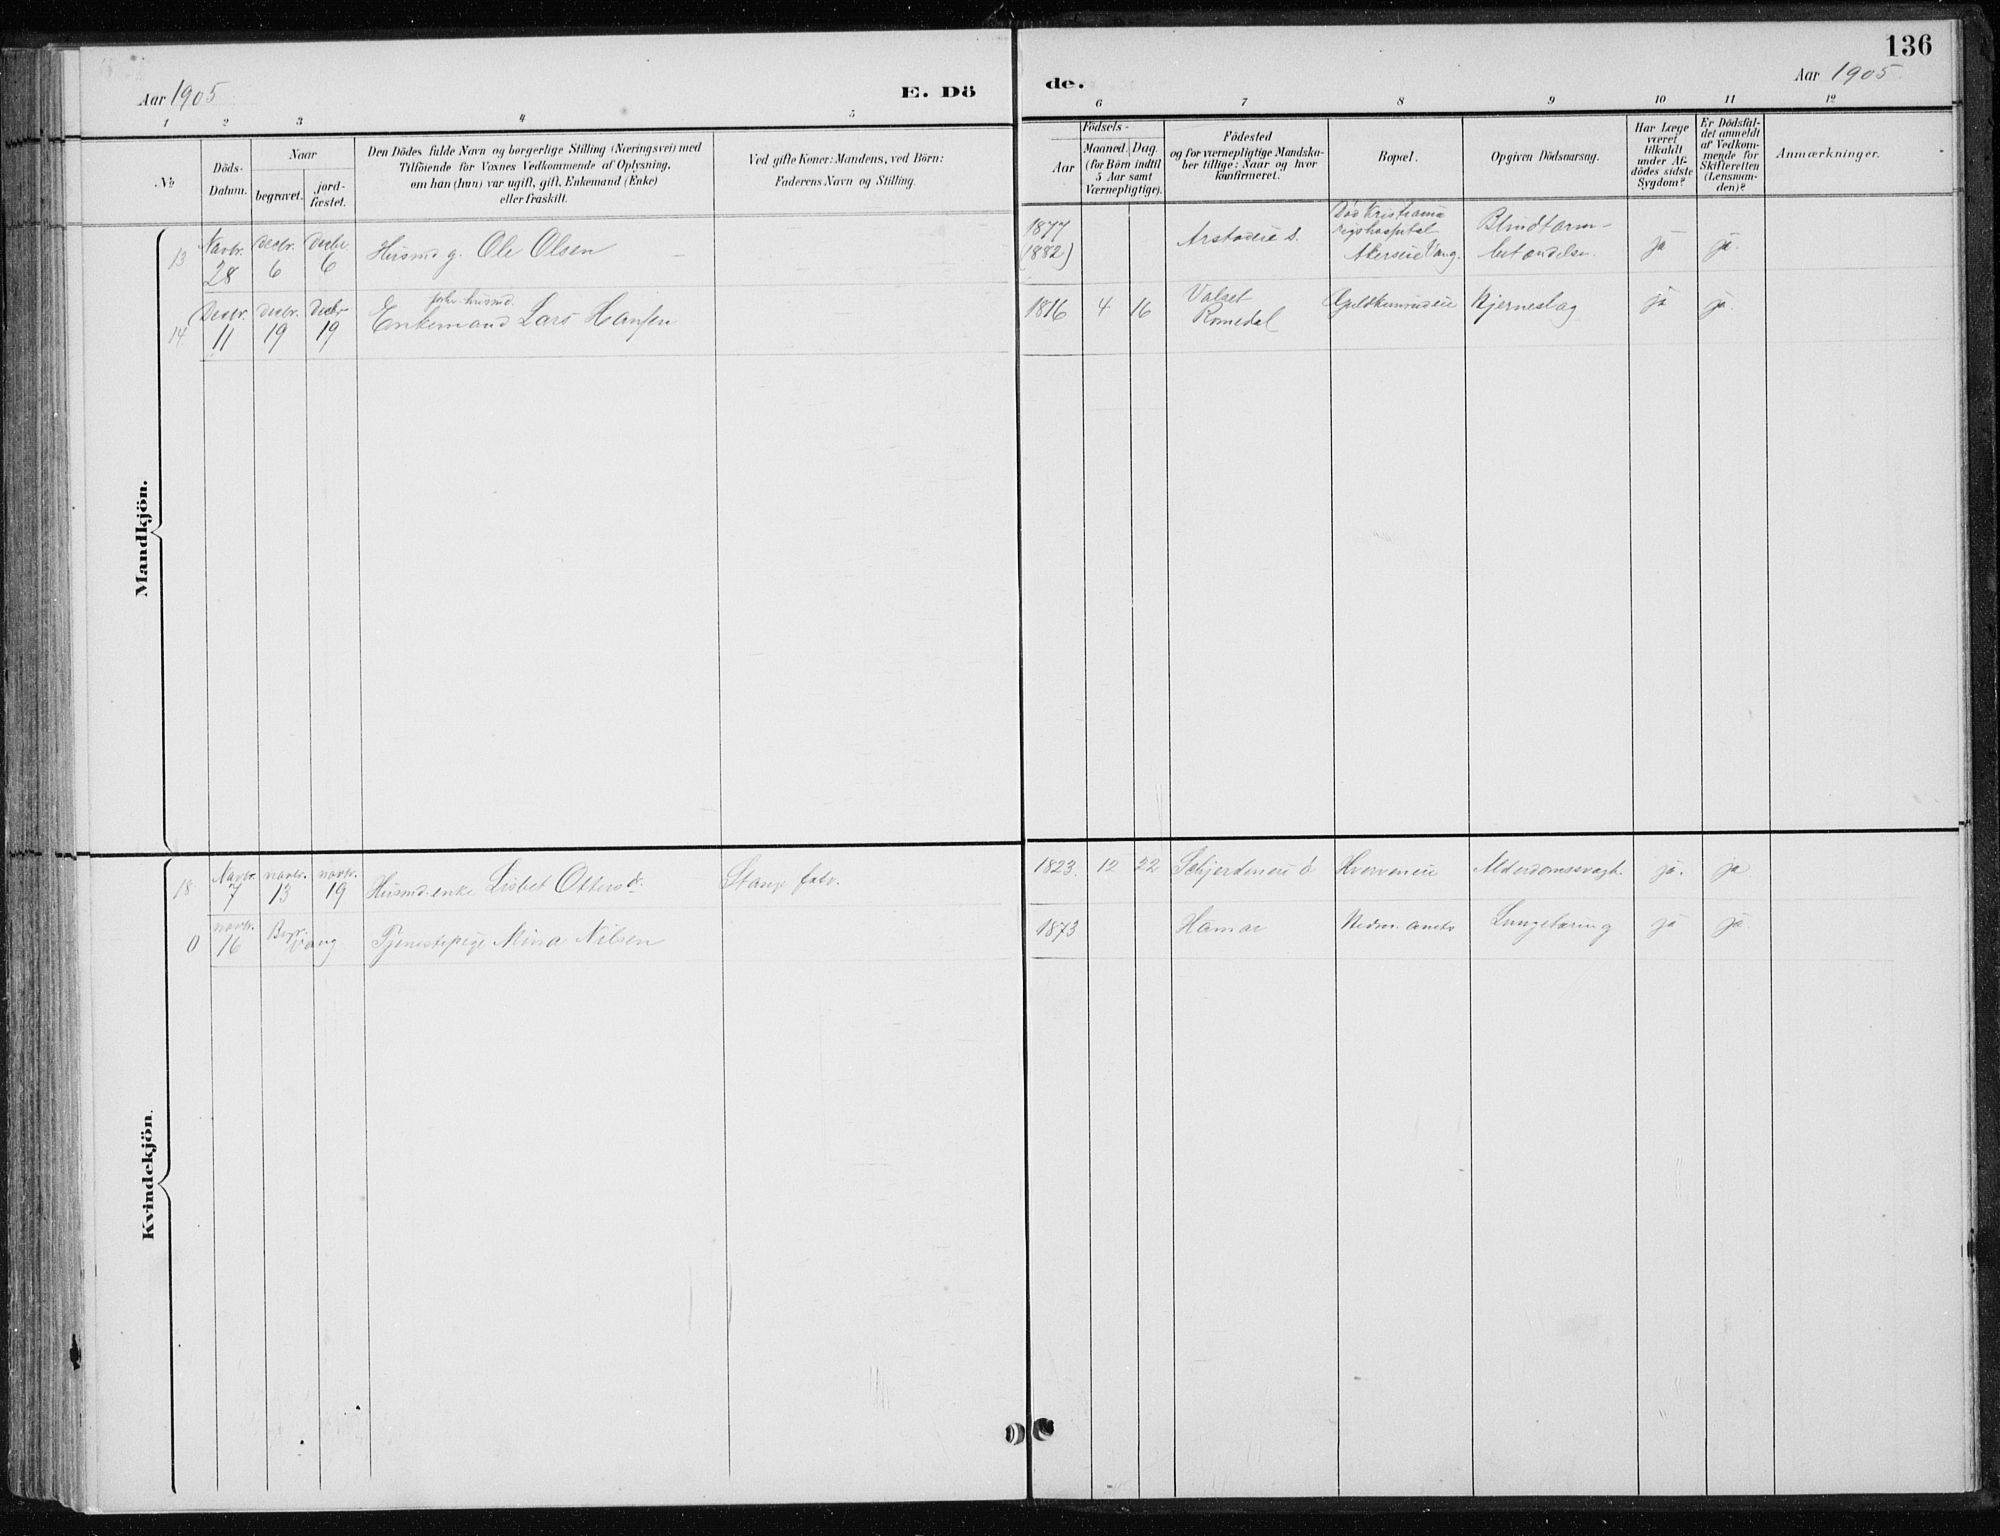 136
Aar 1905
E. Dö
de.
Aar 1905.
1 2 3 4 5 6 7 8 9 10 11 12
No
Döds-
Datum.
Naar
begravet.
jord-
fæstet.
Den Dödes fulde Navn og borgerlige Stilling (Næringsvei) med
Tilföiende for Voxnes Vedkommende af Oplysning,
om han (hun) var ugift, gift, Enkemand (Enke)
eller fraskilt.
Ved gifte Koner: Mandens, ved Börn:
Faderens Navn og Stilling.
Födsels-
Aar
Maaned. Dag.
(for Börn indtil
5 Aar samt
Værnepligtige).
Födested
og for værnepligtige Mandska-
ber tillige: Naar og hvor
konfirmeret.
Bopæl.
Opgiven Dödsaarsag.
Har Læge
været
tilkaldt
under Af-
dödes sidste
Sygdom?
Er Dödsfal-
det anmeldt
af Vedkom-
mende for
Skifteretten
(Lensman-
den)?
Anmærkninger.
Mandkjön.
13 Novbr. 28 decbr. 6 decbr. 6 Husmd g. Ole Olsen — 1877 (1882) Død Kristiania rigshospital Akerseie Vang. Blindtarm-betændelse. ja ja.
14 Decbr. 11 decbr. 19 decbr. 19 forhv. husmd. Enkemand Lars Hansen 1816 4 16 Valset Romedal Hjerneslag ja ja.
Kvindekjön.
18 Novbr. 7 novbr. 13 novbr. 19 Husmd.enke Lisbet Ottersd. Stange fatv. 1823 12 22 Hverveneie Alderdomssvagh. ja. ja
0 novbr. 16 Begr. Vang Tjenestepige Mina Nilsen 1873 Hamar Hedm. amts Lungetæring ja ja.